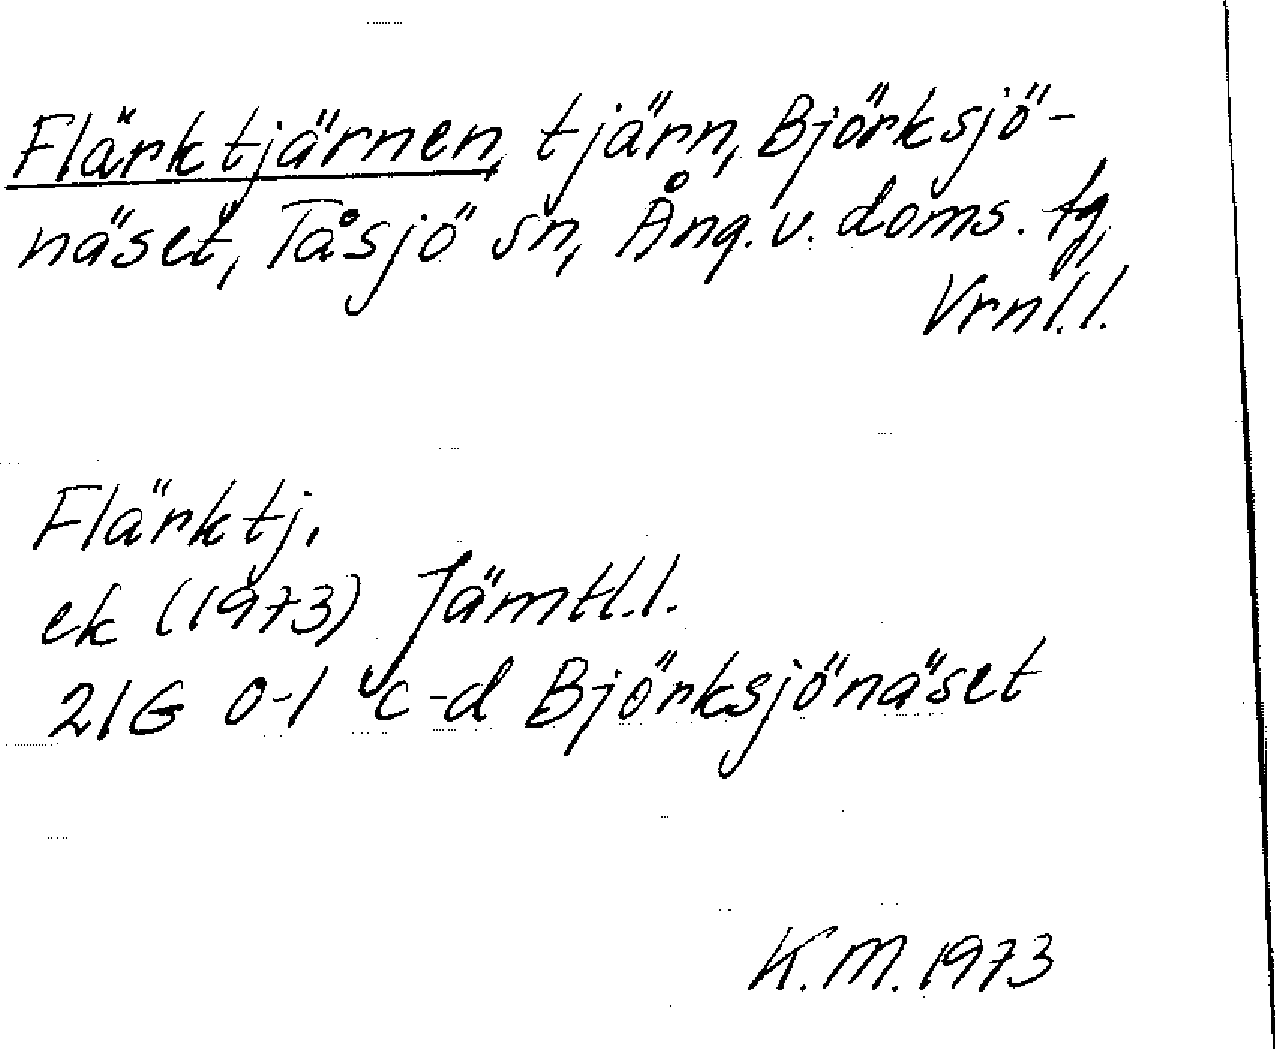 Flärktjärnen, tjärn, Björksjö-
näset, Tåsjö sn, Ång. v. doms. tg,
Vrnl.l.
Flärktj.
ek (1973) Jämtl.l.
21G 0-1 c-d Björksjönäset
K.M. 1973